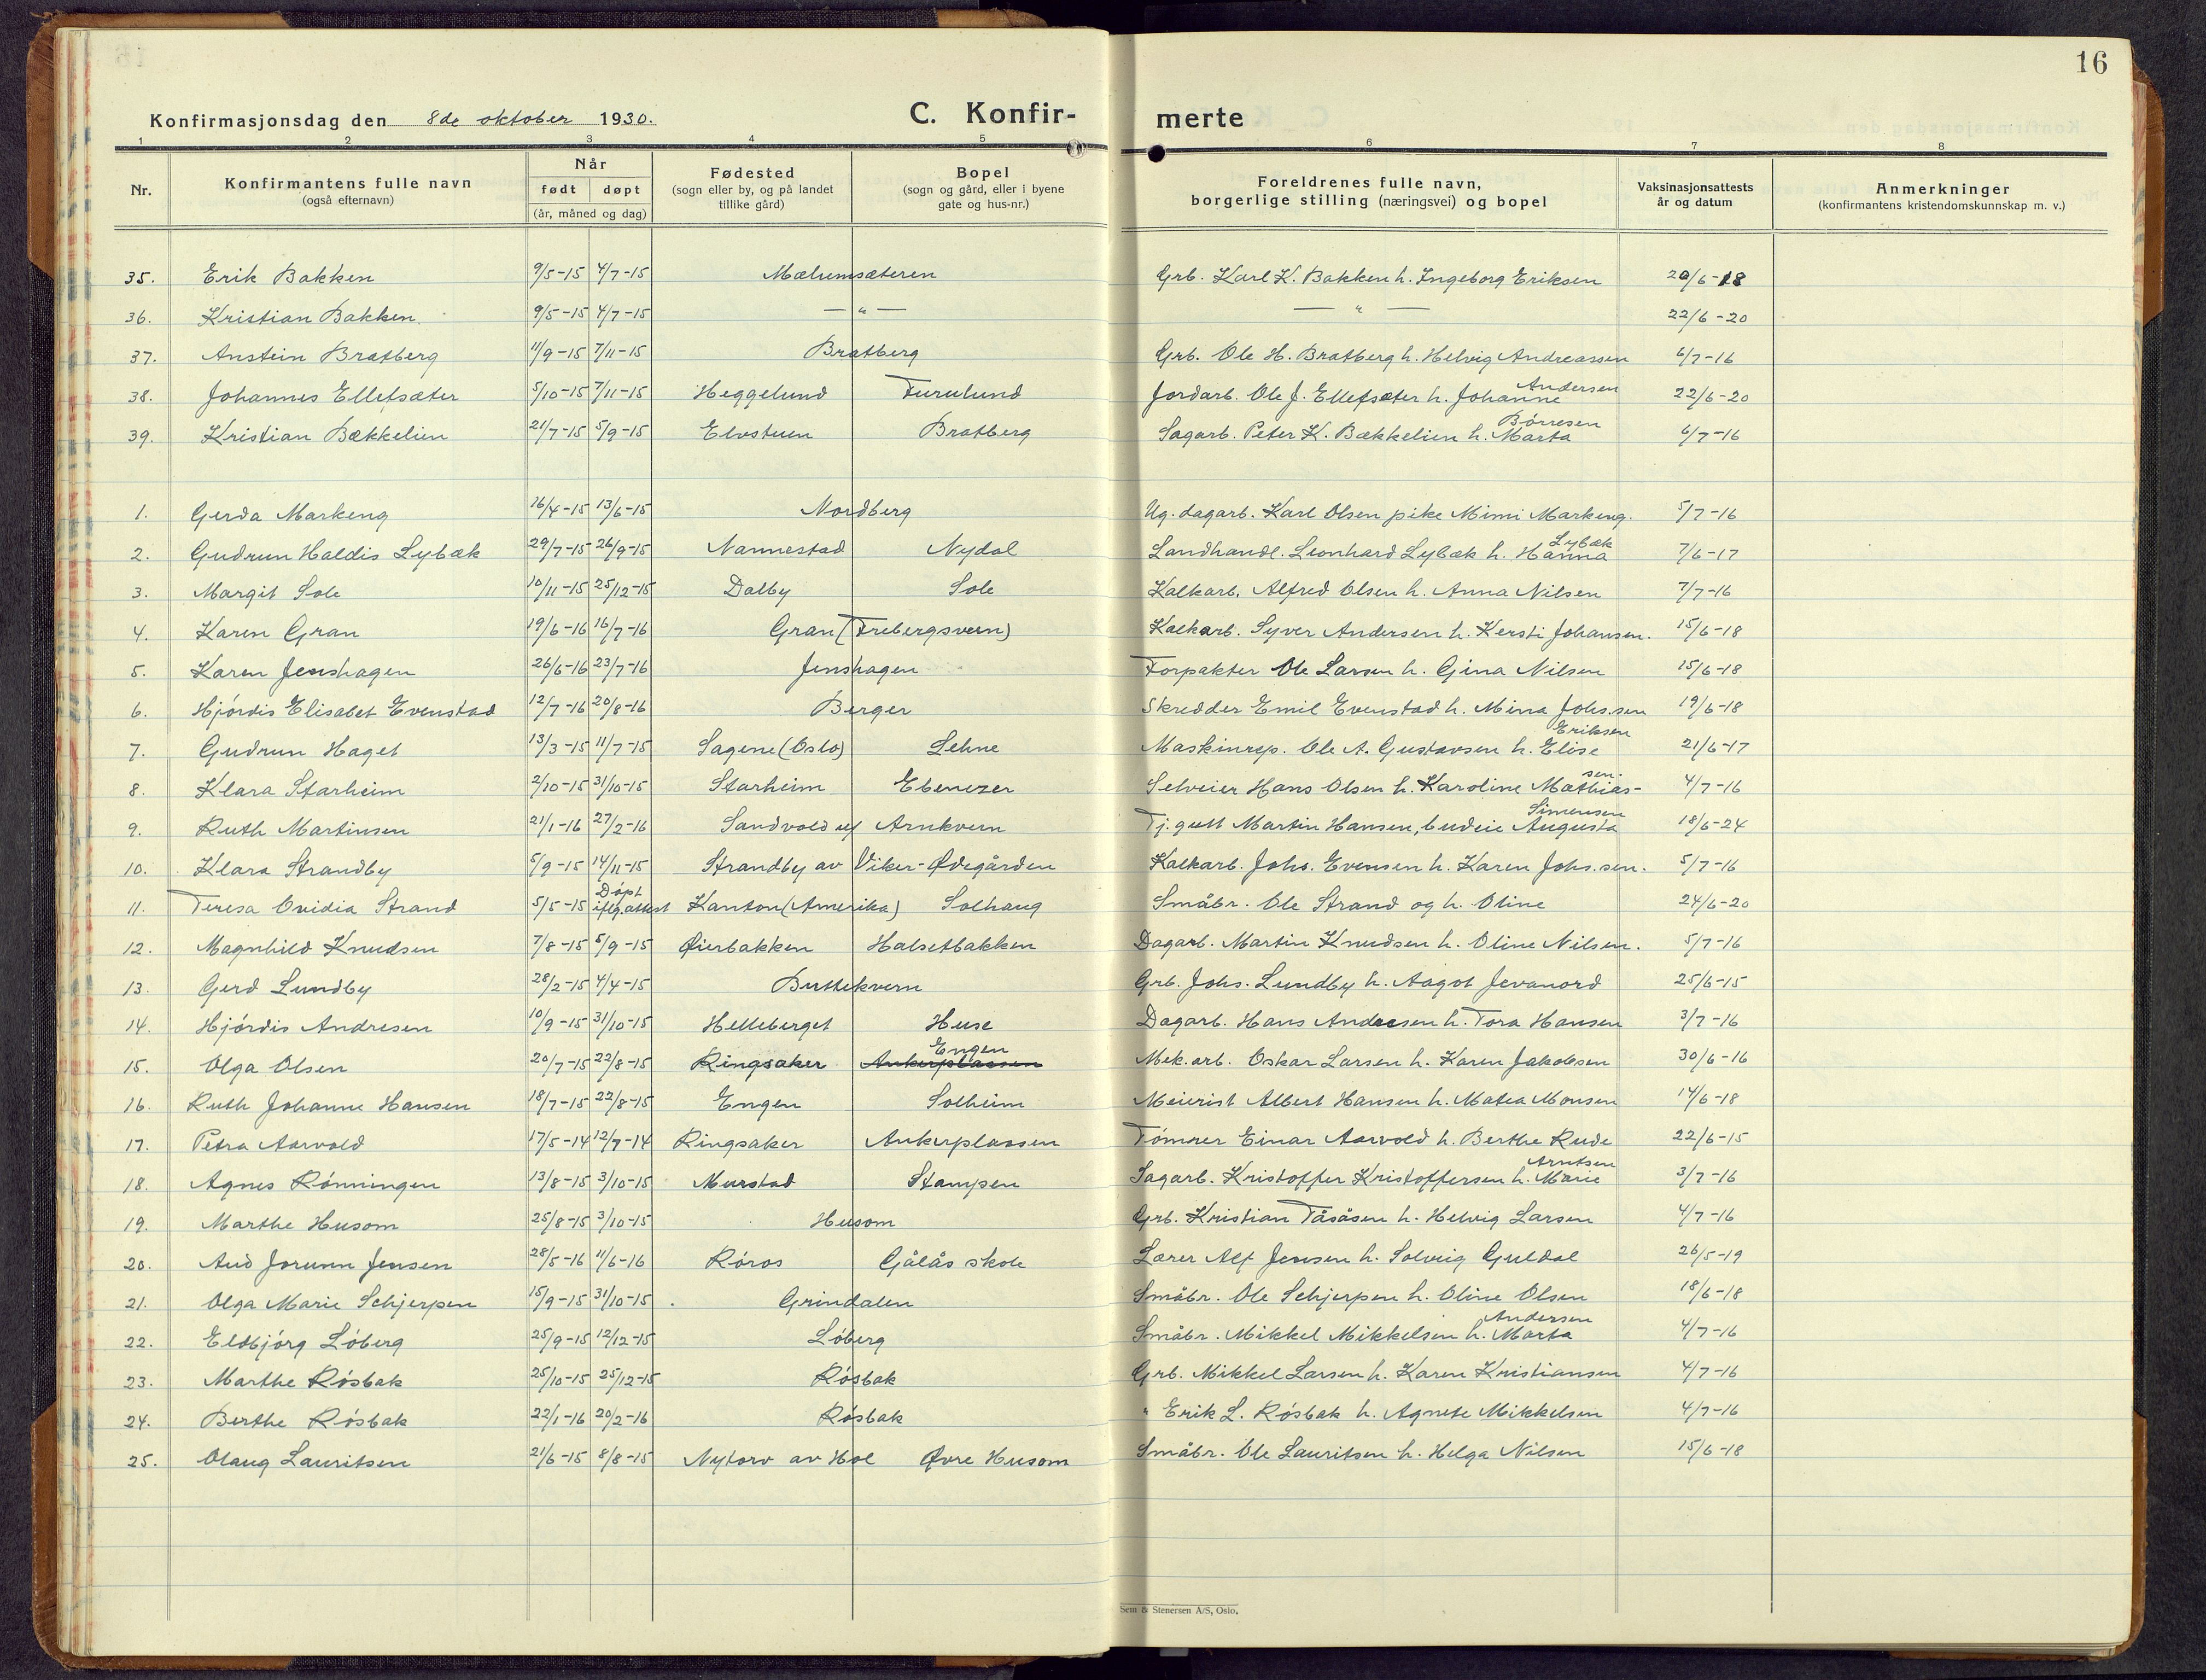 16
Konfirmasjonsdag den 8de oktober 1930. C. Konfir- merte
1 2 3 4 5 6 7 8
Nr. Konfirmantens fulle navn (også efternavn) Når født døpt (år, måned og dag) Fødested (sogn eller by, og på landet tillike gård) Bopel (sogn og gård, eller i byene gate og hus-nr.) Foreldrenes fulle navn, borgerlige stilling (næringsvei) og bopel Vaksinasjonsattests år og datum Anmerkninger (konfirmantens kristendomskunnskap m. v.)
35. Erik Bakken 9/5-15 4/7-15 Mælumsæteren Grb. Karl K. Bakken h. Ingeborg Eriksen 20/6-18
36. Kristian Bakken. 9/5-15 4/7-15 — " — — " — 22/6-20
37. Anstein Bratberg 11/9-15 7/11-15 Bratberg Grb. Ole H. Bratberg h. Helvig Andreassen 6/7-16
38. Johannes Ellefsæter 5/10-15 7/11-15 Heggelund Furulund Jordarb. Ole J. Ellefsæter h. Johanne Andersen 22/6-20
39. Kristian Bækkelien 21/7-15 5/9-15 Elvstuen Bratberg Sagarb. Peter K. Bækkelien h. Marta Børresen 6/7-16
1. Gerda Markeng 16/4-15 13/6-15 Nordberg Ug. dagarb. Karl Olsen pike Mimi Markeng. 5/7-16
2. Gudrun Haldis Lybæk 29/7-15 26/9-15 Nannestad Nydal Landhandl. Leonhard Lybæk h. Hanna Lybæk 7/6-17
3. Margit Sole 10/11-15 25/12-15 Dalby Sole Kalkarb. Alfred Olsen h. Anna Nilsen 7/7-16
4. Karen Gran 19/6-16 16/7-16 Gran (Frebergsvern) Kalkarb. Syver Andersen h. Kersti Johansen. 15/6-18
5. Karen Jenshagen 26/6-16 23/7-16 Jenshagen Forpakter Ole Larsen h. Gina Nilsen 15/6-18
6. Hjördis Elisabet Evenstad 12/7-16 20/8-16 Berger Skredder Emil Evenstad h. Mina Johs.sen 19/6-18
7. Gudrun Haget 13/3-15 11/7-15 Sagene (Oslo) Lehne Maskinrep. Ole A. Gustavsen h. Elise Eriksen 21/6-17
8. Klara Starheim 2/10-15 31/10-15 Starheim Ebenezer Selveier Hans Olsen h. Karoline Mathias-sen. 4/7-16
9. Ruth Martinsen 21/1-16 27/2-16 Sandvold u/ Arnkvern Tj.gutt Martin Hansen, budeie Augusta Simensen 18/6-24
10. Klara Strandby 5/9-15 14/11-15 Strandby av Viker-Ødegården Kalkarb. Johs. Evensen h. Karen Johs.sen. 5/7-16
11. Teresa Ovidia Strand 5/5-15 Døpt iflg.attest Kanton (Amerika) Solhaug Småbr. Ole Strand og h. Oline 24/6-20
12. Magnhild Knudsen 7/8-15 5/9-15 Øierbakken Halsetbakken Dagarb. Martin Knudsen h. Oline Nilsen. 5/7-16
13. Gerd Lundby 28/2-15 4/4-15 Buttekvern Grb. Johs. Lundby h. Aagot Jevanord 25/6-15
14. Hjördis Andresen 10/9-15 31/10-15 Helleberget Huse Dagarb. Hans Andresen h. Tora Hansen 3/7-16
15. Olga Olsen 20/7-15 22/8-15 Ringsaker Engen Ankerplassen Mek.arb. Oskar Larsen h. Karen Jakobsen 30/6-16
16. Ruth Johanne Hansen 18/7-15 22/8-15 Engen Solheim Meierist Albert Hansen h. Matea Monsen 14/6-18
17. Petra Aarvold 17/5-14 12/7-14 Ringsaker Ankerplassen Tömrer Einar Aarvold h. Berthe Rude 22/6-15
18. Agnes Rönningen 13/8-15 3/10-15 Murstad Stampen Sagarb. Kristoffer Kristoffersen h. Marie Arntsen 3/7-16
19. Marthe Husom 25/8-15 3/10-15 Husom Grb. Kristian Tåsåsen h. Helvig Larsen 4/7-16
20. Aud Jorunn Jensen 28/5-16 11/6-16 Röros Gålås skole Lærer Alf Jensen h. Solveig Guldal 26/5-19
21. Olga Marie Schjerpen 15/9-15 31/10-15 Grindalen Småbr. Ole Schjerpen h. Oline Olsen 18/6-18
22. Eldbjörg Löberg 25/9-15 12/12-15 Löberg Småbr. Mikkel Mikkelsen h. Marta Andersen 4/7-16
23. Marthe Rösbak 25/10-15 25/12-15 Rösbak Grb. Mikkel Larsen h. Karen Kristiansen 4/7-16
24. Berthe Rösbak 22/1-16 20/2-16 Rösbak " Erik L. Rösbak h. Agnete Mikkelsen 4/7-16
25. Olaug Lauritsen 21/6-15 8/8-15 Nytorv av Hol Øvre Husom Småbr. Ole Lauritsen h. Helga Nilsen 15/6-18
Sem & Stenersen A/S, Oslo.